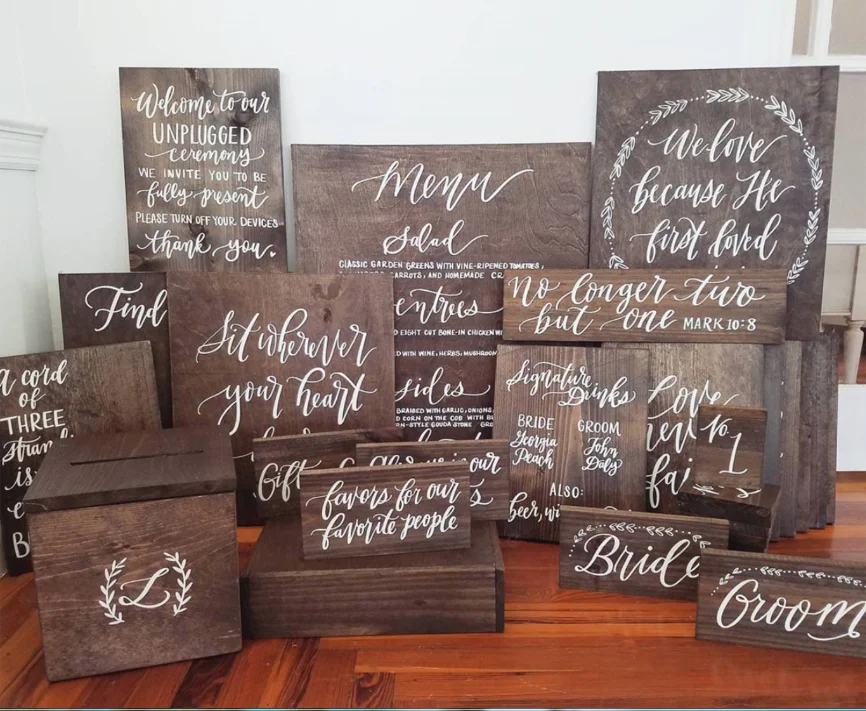 Welcome to our
UNPLUGGED
ceremony
WE INVITE YOU TO BE
fully present
PLEASE TURN OFF YOUR DEVICES
thank you.
Menu
Salad
CLASSIC GARDEN GREENS WITH VINE-RIPENED TOMATOES,
CARROTS, AND HOMEMADE
entrees
EIGHT CUT BONE-IN CHICKEN
WITH WINE, HERBS, MUSHROOM
sides
BRAISED WITH GARLIC, ONIONS
CORN ON THE COB WITH
-STYLE GOUDA
We love
because He
first loved
No longer two
but one MARK 10:8
Find
Sit wherever
your heart
a cord
of
THREE
is
Signature
Drinks
BRIDE
Georgia
Peach
GROOM
John
Daly
ALSO:
beer,
Love
No.
1
Gift
our
favors for our
favorite people
Bride
Groom
L